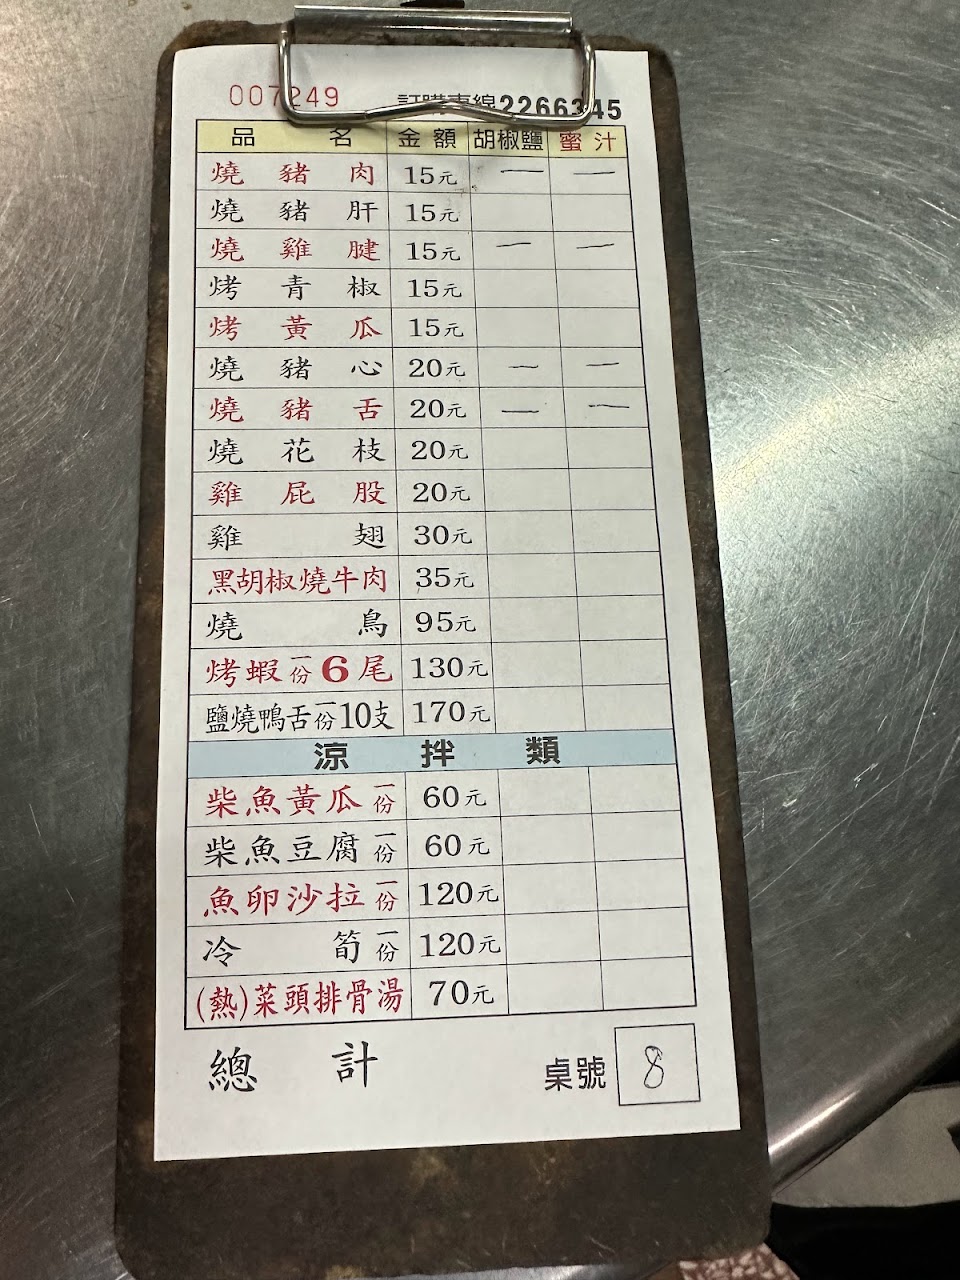 007249 訂購專線2266345
品名 金額 胡椒鹽 蜜汁
燒豬肉 15元 一 一
燒豬肝 15元
燒雞腱 15元 一 一
烤青椒 15元
烤黃瓜 15元
燒豬心 20元 一 一
燒豬舌 20元 一 一
燒花枝 20元
雞屁股 20元
雞翅 30元
黑胡椒燒牛肉 35元
燒鳥 95元
烤蝦一份6尾 130元
鹽燒鴨舌一份10支 170元
涼拌類
柴魚黃瓜一份 60元
柴魚豆腐一份 60元
魚卵沙拉一份 120元
冷筍一份 120元
(熱)菜頭排骨湯 70元
總計 桌號 8